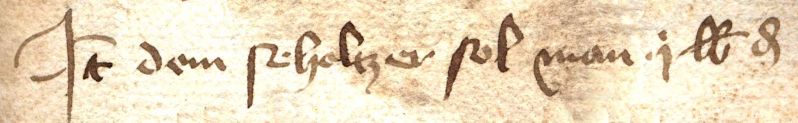 It dem scheltzer sol man j lb d